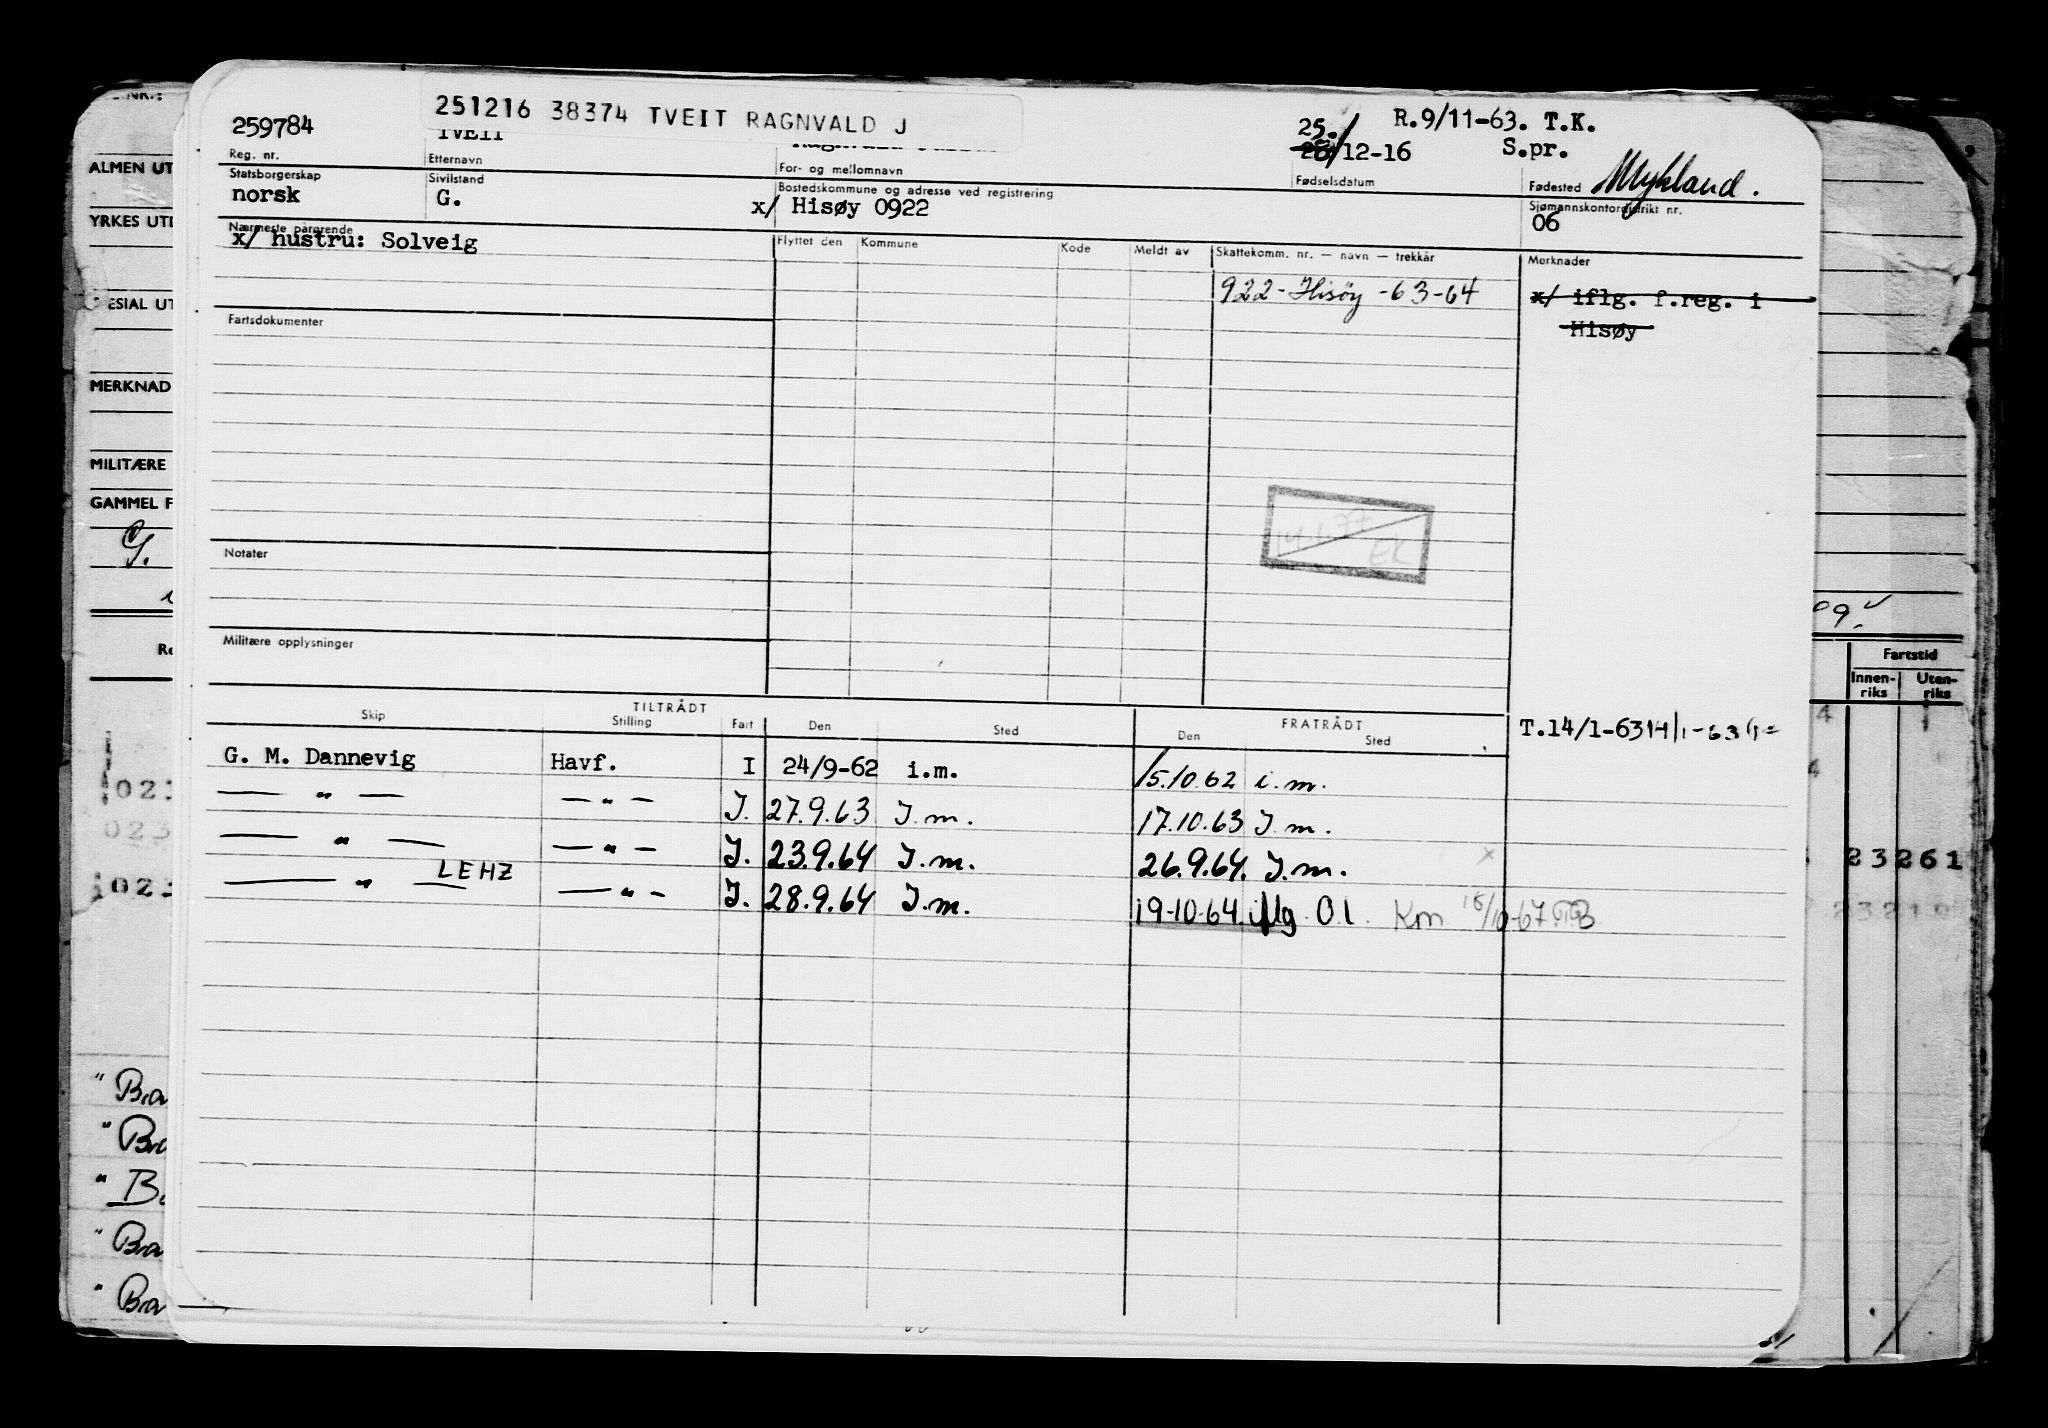 251216 38374 TVEIT RAGNVALD J
259784 TVEIT 25./ 26/12-16 R.9/11-63. T.K.
S.pr.
Reg. nr. Etternavn For- og mellomnavn Fødselsdatum Fødested Mykland.
Statsborgerskap Sivilstand Bostedskommune og adresse ved registrering Sjømannskontordistrikt nr.
norsk G. x/ Hisøy 0922 06
Nærmeste pårørende Flyttet den Kommune Kode Meldt av Skattekomm. nr. — navn — trekkår Merknader
x/ hustru: Solveig
922-Hisøy -63-64 x/ iflg. f.reg. i
Hisøy
Fartsdokumenter
14.1.77
EK
Notater
Militære opplysninger
TILTRÅDT FRATRÅDT
Skip Stilling Fart Den Sted Den Sted
T.14/1-63 14/1-63
G. M. Dannevig Havf. I 24/9-62 i.m. 15.10.62 i.m.
— " — — " — I. 27.9.63 I.m. 17.10.63 I.m.
— " — — " — I. 23.9.64 I.m. 26.9.64. I.m.
— " — LEHZ — " — I. 28.9.64 I.m. 19-10-64 iflg O.l. Km 16/10-67
ALMEN UT
YRKES UT
ESIAL UT
MERKNAD
MILITÆRE
GAMMEL F
G.
09.
Re
Fartstid
Innen-
riks
Uten-
riks
4
023
023
023
23261
" Bra
" Bra
" B
" Bra
" Bra